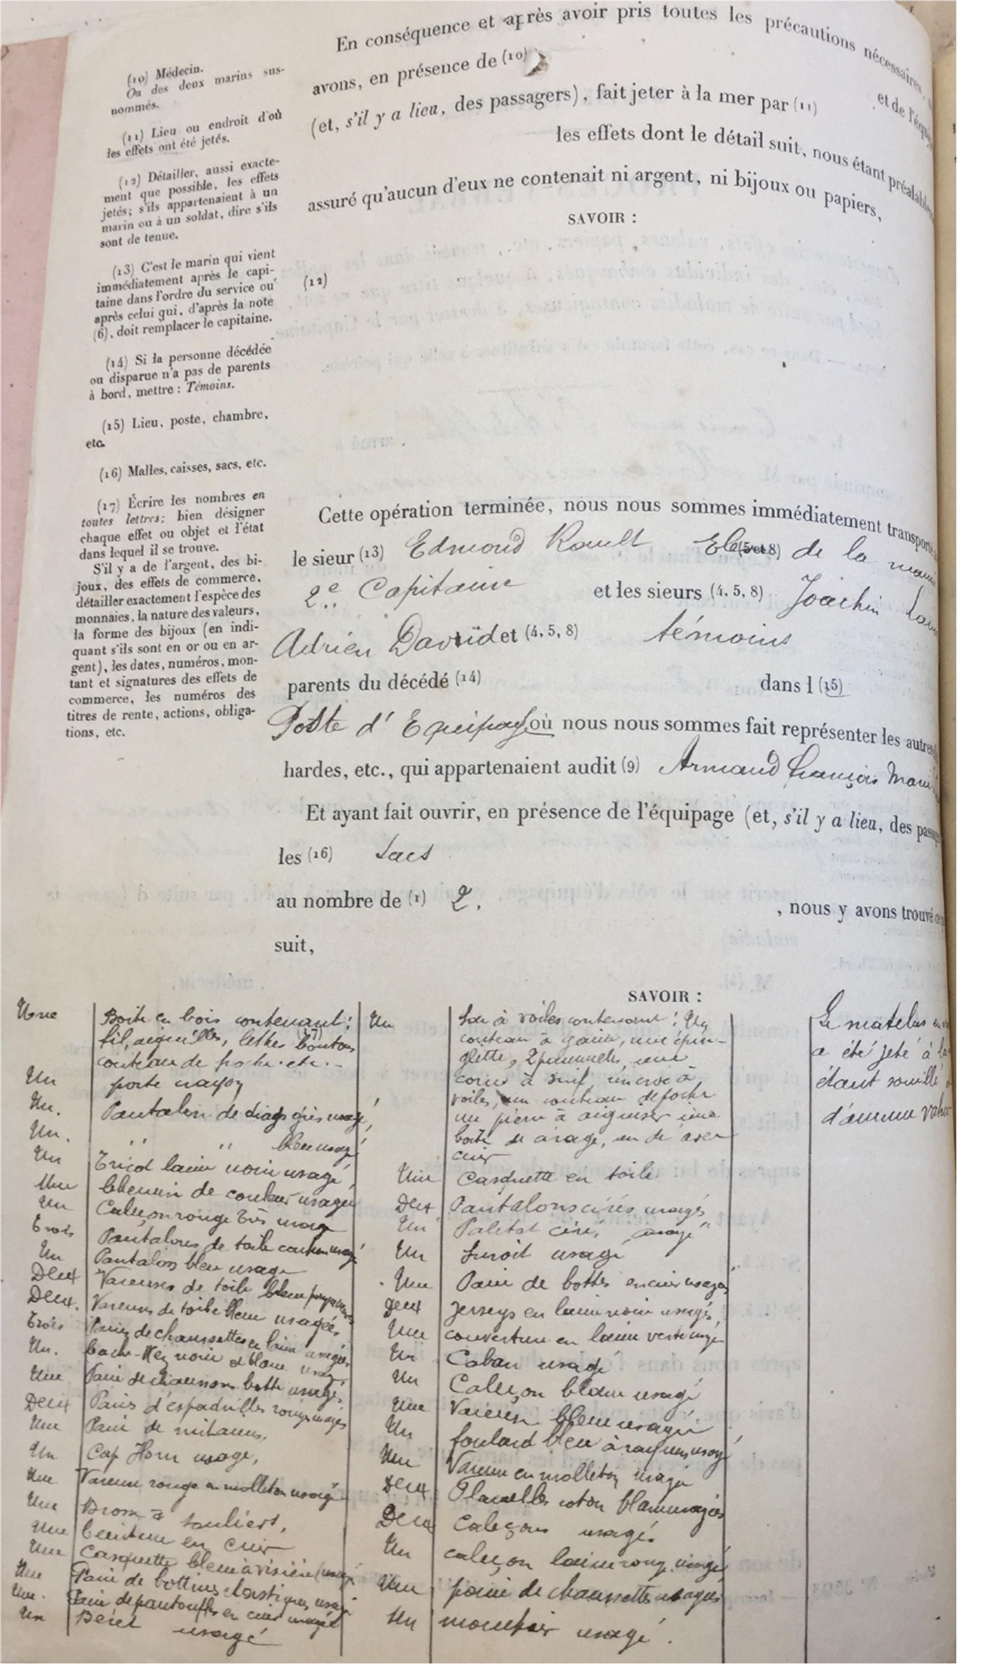 En conséquence et après avoir pris toutes les précautions nécessaires,
avons, en présence de (10)
et de l'équi
(et, s'il y a lieu, des passagers), fait jeter à la mer par (11)
les effets dont le détail suit, nous étant préalable
assuré qu'aucun d'eux ne contenait ni argent, ni bijoux ou papiers,
SAVOIR :
(12)
(10) Médecin.
Ou des deux marins sus-
nommés.
(11) Lieu ou endroit d'où
les effets ont été jetés.
(12) Détailler, aussi exacte-
ment que possible, les effets
jetés; s'ils appartenaient à un
marin ou à un soldat, dire s'ils
sont de tenue.
(13) C'est le marin qui vient
immédiatement après le capi-
taine dans l'ordre du service ou
après celui qui, d'après la note
(6), doit remplacer le capitaine.
(14) Si la personne décédée
ou disparue n'a pas de parents
à bord, mettre : Témoins.
(15) Lieu, poste, chambre,
etc.
(16) Malles, caisses, sacs, etc.
(17) Écrire les nombres en
toutes lettres; bien désigner
chaque effet ou objet et l'état
dans lequel il se trouve.
S'il y a de l'argent, des bi-
joux, des effets de commerce,
détailler exactement l'espèce des
monnaies, la nature des valeurs,
la forme des bijoux (en indi-
quant s'ils sont en or ou en ar-
gent), les dates, numéros, mon-
tant et signatures des effets de
commerce, les numéros des
titres de rente, actions, obliga-
tions, etc.
Cette opération terminée, nous nous sommes immédiatement transporté
le sieur (13) Edmond Roault (5 et 8) de la
2e Capitaine et les sieurs (4, 5, 8) Joachim
Adrien David et (4, 5, 8) témoins
parents du décédé (14) dans l (15)
Poste d'Equipage où nous nous sommes fait représenter les autres
hardes, etc., qui appartenaient audit (9) Armand François Marie
Et ayant fait ouvrir, en présence de l'équipage (et, s'il y a lieu, des passa
les (16) Sacs
au nombre de (1) 2. , nous y avons trouvé
suit,
SAVOIR :
Une Boite en bois contenant :
fil, aiguilles, lettres boutons
couteau de poche etc.
Un porte crayon
Un. Pantalon de diags gris usagé
Un. " " bleu usagé
Un Tricot laine noire usagé
Une Chemise de couleur usagée
Un Caleçon rouge très usagé
Trois Pantalons de toile usagé
Un Pantalon bleu usagé
Deux Vareuses de toile bleue
Deux. Vareuses de toile bleue usagées
Trois Paires de chaussettes en laine usagées
Un. Cache-Nez noir et blanc usagé
Une Paire de chaussons botte usagés
Deux Paires d'espadrilles usagées
Une Paire de mitaines,
Un Cap Horn usagé,
Une Vareuse rouge en molleton usagée
Une Brosse à souliers,
Une Ceinture en cuir
Une Casquette bleue à visière usagé
Une Paire de bottines élastiques usagé
Une. Paire de pantoufles en cuir usagé
Un Béret usagé
Un Sac à voiles contenant : Un
couteau à gaine, une épin-
glette, 2 paumelles, une
corne à suif, un croc à
voiles, un couteau de poche
une pierre à aiguiser une
boite de cirage, un dé avec
cuir
Une Casquette en toile
Deux Pantalons cirés usagés
Un Paletot ciré usagé
Un Suroit usagé
Une Paire de bottes en cuir usagées
Deux Jerseys en laine noire usagés
Une couverture en laine verte usagée
Un Caban usagé
Un Caleçon blanc usagé
Une Vareuse bleue usagée
Un foulard bleu à usagé
Une Vareuse en molleton usagée
Deux Flanelles coton usagées
Deux caleçons usagés
Un caleçon laine rouge usagé
Une paire de chaussettes usagées
Un mouchoir usagé.
Le matelas
a été jeté à la
étant souillé
d'aucune valeur